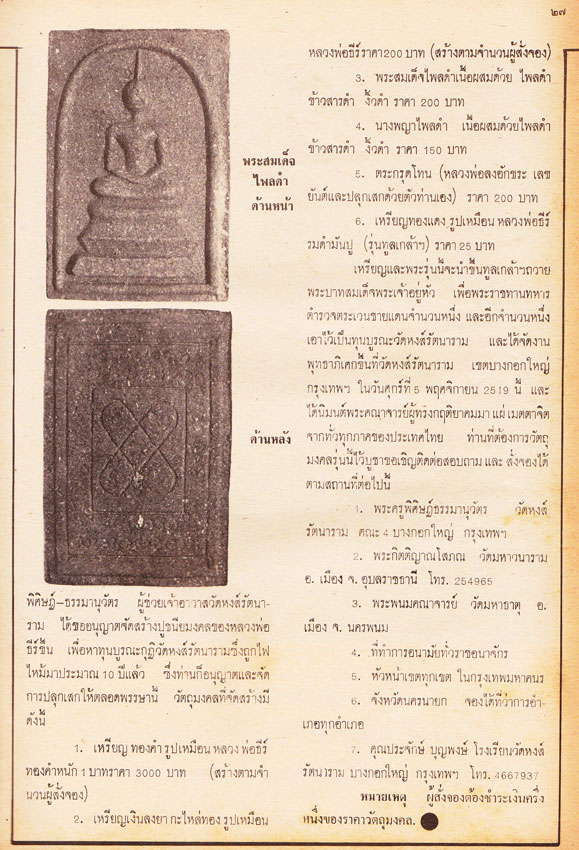 ๒๗
พระสมเด็จ
ไพลดำ
ด้านหน้า
ด้านหลัง
พิศิษฎ์–ธรรมานุวัตร ผู้ช่วยเจ้าอาวาสวัดหงส์รัตนา-
ราม ได้ขออนุญาตจัดสร้างปูชนียมงคลของหลวงพ่อ
ธีร์ขึ้น เพื่อหาทุนบูรณะกุฏิวัดหงส์รัตนารามซึ่งถูกไฟ
ไหม้มาประมาณ 10 ปีแล้ว ซึ่งท่านก็อนุญาตและจัด
การปลุกเสกให้ตลอดพรรษานี้ วัตถุมงคลที่จัดสร้างมี
ดังนี้
1. เหรียญทองคำ รูปเหมือน หลวงพ่อธีร์
ทองคำหนัก 1 บาทราคา 3000 บาท (สร้างตามจำ
นวนผู้สั่งจอง)
2. เหรียญเงินลงยา กะไหล่ทอง รูปเหมือน
หลวงพ่อธีร์ราคา 200 บาท (สร้างตามจำนวนผู้สั่งจอง)
3. พระสมเด็จไพลดำเนื้อผสมด้วย ไพลดำ
ข้าวสารดำ งิ้วดำ ราคา 200 บาท
4. นางพญาไพลดำ เนื้อผสมด้วยไพลดำ
ข้าวสารดำ งิ้วดำ ราคา 150 บาท
5. ตระกรุดโทน (หลวงพ่อลงอักขระ เลข
ยันต์และปลุกเสกด้วยตัวท่านเอง) ราคา 200 บาท
6. เหรียญทองแดง รูปเหมือน หลวงพ่อธีร์
รมดำมันปู (รุ่นทูลเกล้าฯ) ราคา 25 บาท
เหรียญและพระรุ่นนี้จะนำขึ้นทูลเกล้าฯถวาย
พระบาทสมเด็จพระเจ้าอยู่หัว เพื่อพระราชทานทหาร
ตำรวจตระเวนชายแดนจำนวนหนึ่ง และอีกจำนวนหนึ่ง
เอาไว้เป็นทุนบูรณะวัดหงส์รัตนาราม และได้จัดงาน
พุทธาภิเศกขึ้นที่วัดหงส์รัตนาราม เขตบางกอกใหญ่
กรุงเทพฯ ในวันศุกร์ที่ 5 พฤศจิกายน 2519 นี้ และ
ได้นิมนต์พระคณาจารย์ผู้ทรงกฤติยาคมมา แผ่ เมตตาจิต
จากทั่วทุกภาคของประเทศไทย ท่านที่ต้องการวัตถุ
มงคลรุ่นนี้ไว้บูชาขอเชิญติดต่อสอบถาม และ สั่งจองได้
ตามสถานที่ต่อไปนี้
1. พระครูพิศิษฎ์ธรรมานุวัตร วัดหงส์
รัตนาราม คณะ 4 บางกอกใหญ่ กรุงเทพฯ
2. พระกิตติญาณโสภณ วัดมหาวนาราม
อ. เมือง จ. อุบลราชธานี โทร. 254965
3. พระพนมคณาจารย์ วัดมหาธาตุ อ.
เมือง จ. นครพนม
4. ที่ทำการอนามัยทั่วราชอนาจักร
5. หัวหน้าเขตทุกเขต ในกรุงเทพมหาคนร
6. จังหวัดนครนายก จองได้ที่ว่าการอำ-
เภอทุกอำเภอ
7. คุณประจักษ์ บุญพงษ์ โรงเรียนวัดหงส์
รัตนาราม บางกอกใหญ่ กรุงเทพฯ โทร. 4667937
หมายเหตุ ผู้สั่งจองต้องชำระเงินครึ่ง
หนึ่งของราคาวัตถุมงคล.